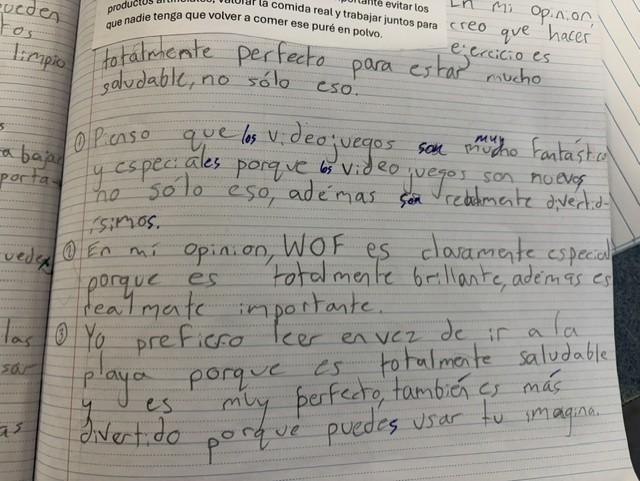 productos artificiales, valorar la comida real y trabajar juntos para
que nadie tenga que volver a comer ese puré en polvo.
En mi opinion,
creo que hacer
ejercicio es
totálmente perfecto para estar mucho
saludable, no sólo eso.
① Pienso que los videojuegos son muy mucho fantástico
y especiáles porque los video juegos son nuevos
no sólo eso, adémas son realmente divertid-
ísimos.
② En mi opinion, WOF es claramente especial
porque es totalmente brillante, adémas es
realmate importante.
③ Yo prefiero leer en vez de ir a la
playa porque es totalmente saludable
y es muy perfecto, también es más
divertido porque puedes usar tu imagina.
ueden
tos
limpio
s
a bajar
porta-
uedex
las
sar
as